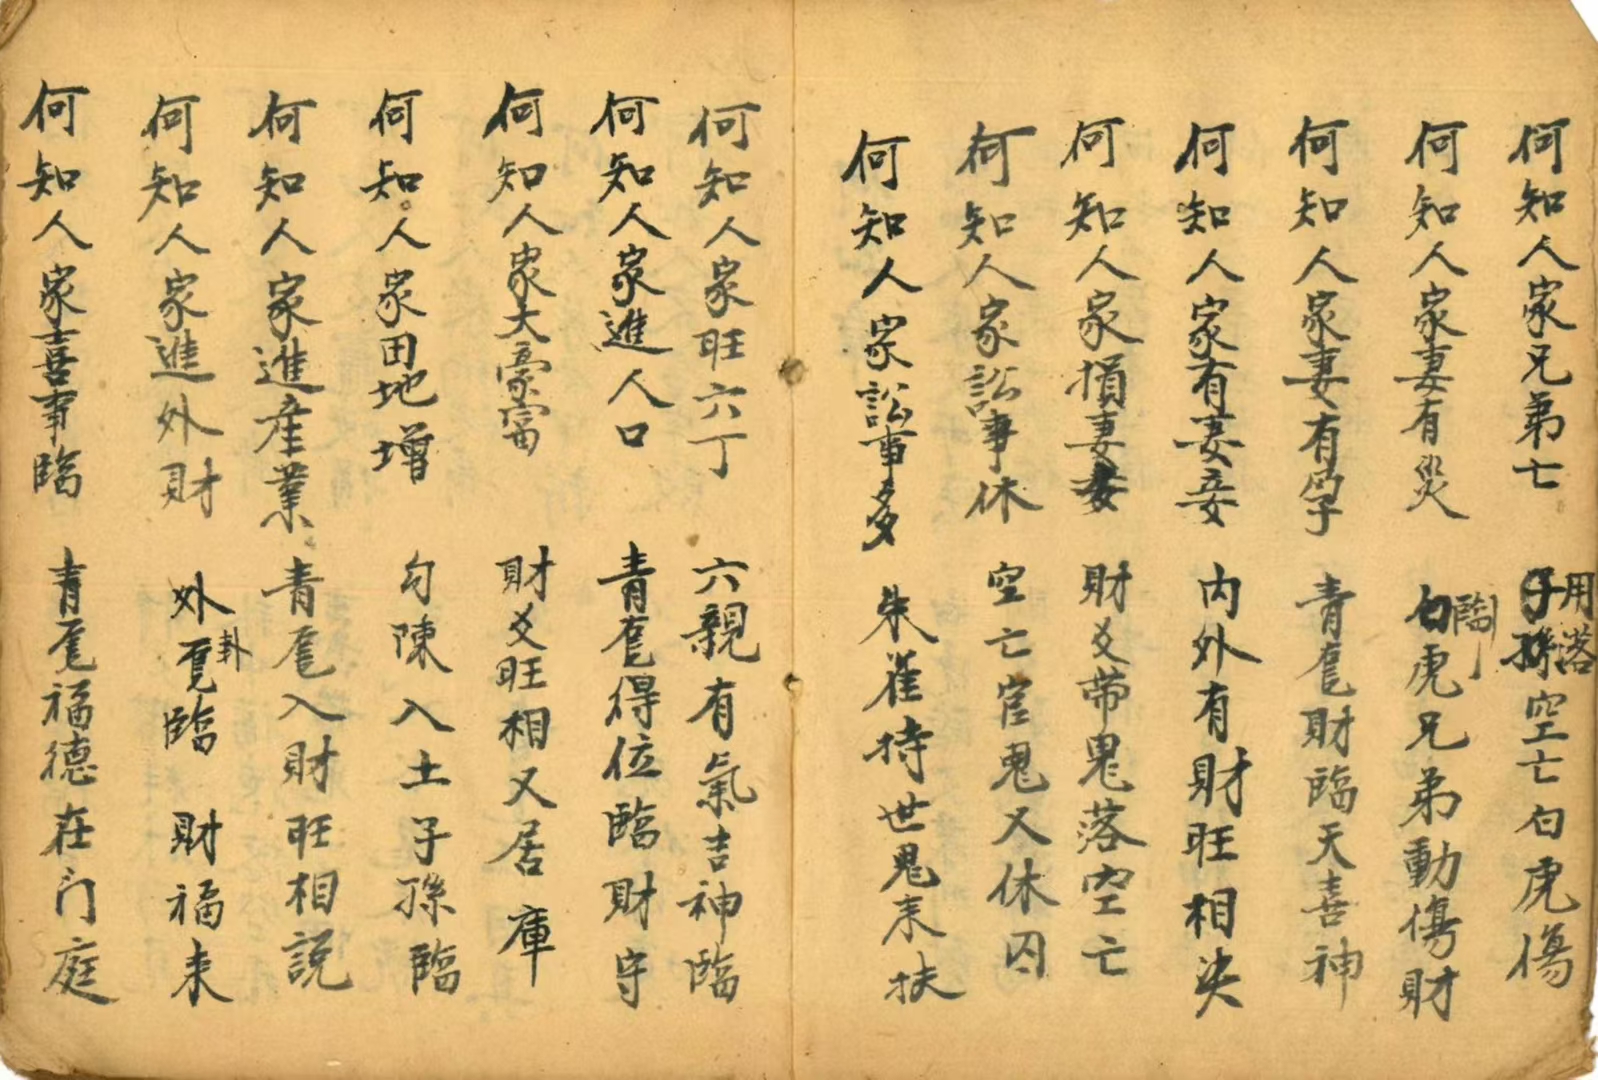 何知人家兄弟亡 用落空亡白虎傷
何知人家妻有災 白虎兄弟動傷財
何知人家妻有孕 青竜財臨天喜神
何知人家有妻妾 内外有財旺相決
何知人家損妻 財爻带鬼落空亡
何知人家訟事休 空亡官鬼又休囚
何知人家訟事多 朱雀持世鬼来扶
何知人家旺六丁 六親有氣吉神臨
何知人家進人口 青竜得位臨財守
何知人家大豪富 財爻旺相又居庫
何知人家田地增 勾陳入土子孫臨
何知人家進産業 青竜入財旺相説
何知人家進外財 外卦竜臨財福来
何知人家喜事臨 青竜福德在门庭